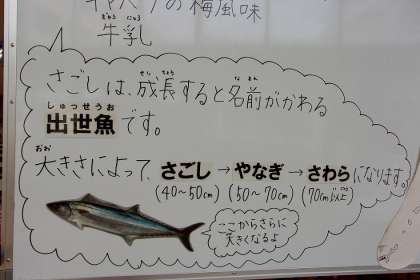 キャベツの梅風味
ぎゅうにゅう
牛乳
さごしは、成長すると名前がかわる
せいちょう
なまえ
しゅっせうお
出世魚です。
おお
大きさによって、さごし→やなぎ→さわらになります。
(40～50cm) (50～70cm) (70cm以上)
ここからさらに
大きくなるよ